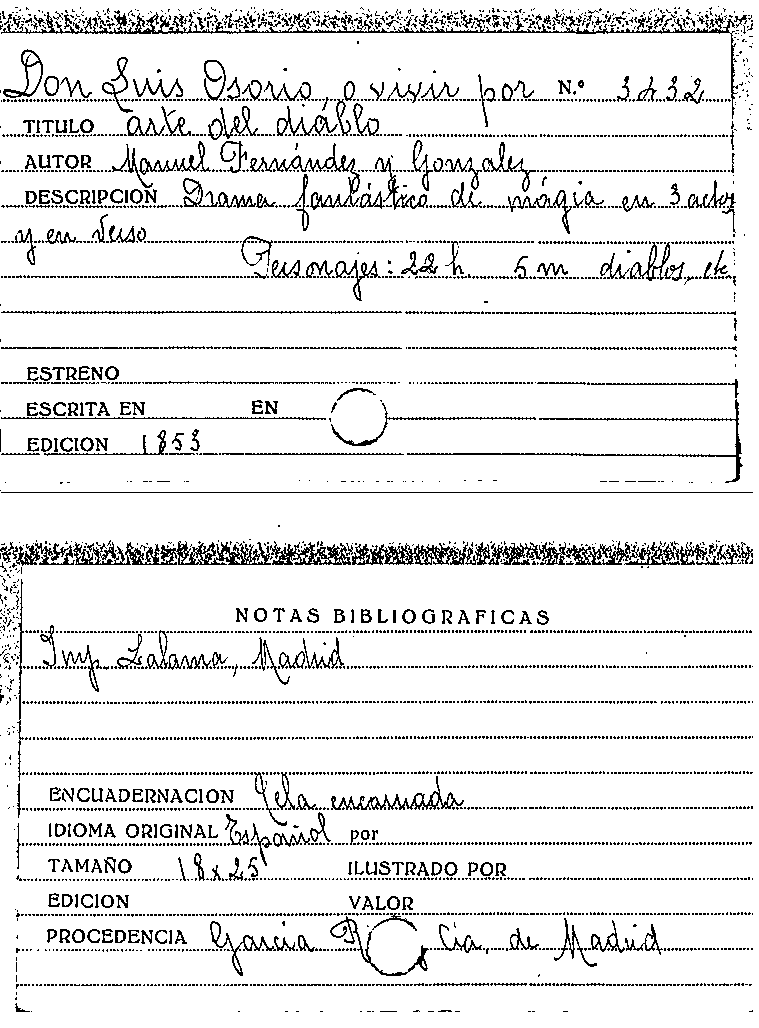 Don Luis Osorio, o vivir por N.º 3432
TITULO arte del diablo
AUTOR Manuel Fernández y Gonzalez
DESCRIPCION Drama fantástico de mágia en 3 actos
y en verso
Personajes: 22 h 5 m diablos, etc
ESTRENO
ESCRITA EN EN
EDICION 1853
NOTAS BIBLIOGRAFICAS
Imp Lalama, Madrid
ENCUADERNACION Tela encarnada
IDIOMA ORIGINAL Español por
TAMAÑO 18 x 25 ILUSTRADO POR
EDICION VALOR
PROCEDENCIA Garcia Cia, de Madrid